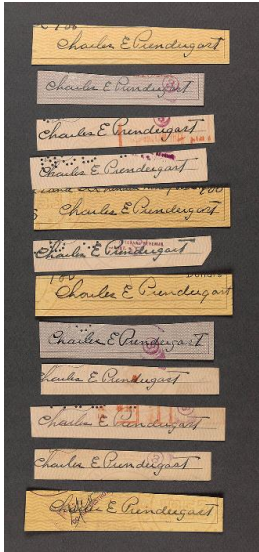 Charles E Prendergast
Charles E Prendergast
Charles E Prendergast
Charles E Prendergast
Charles E Prendergast
Charles E Prendergast
Charles E Prendergast
Charles E Prendergast
Charles E Prendergast
Charles E Prendergast
Charles E Prendergast
Charles E Prendergast